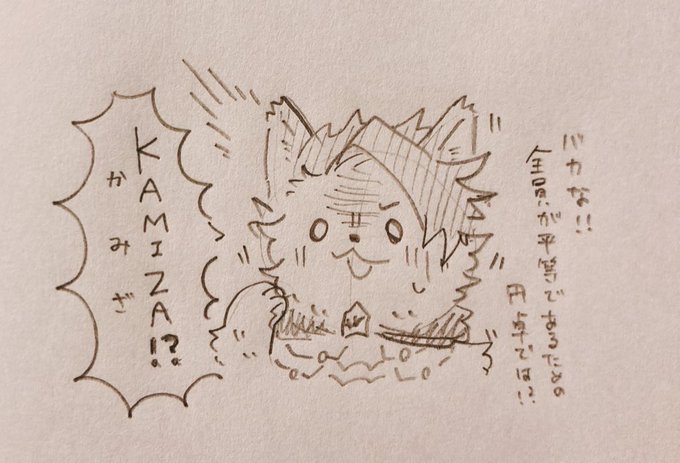 バカな!!
全員が平等であるための
円卓では!?
KAMIZA!?
かみざ